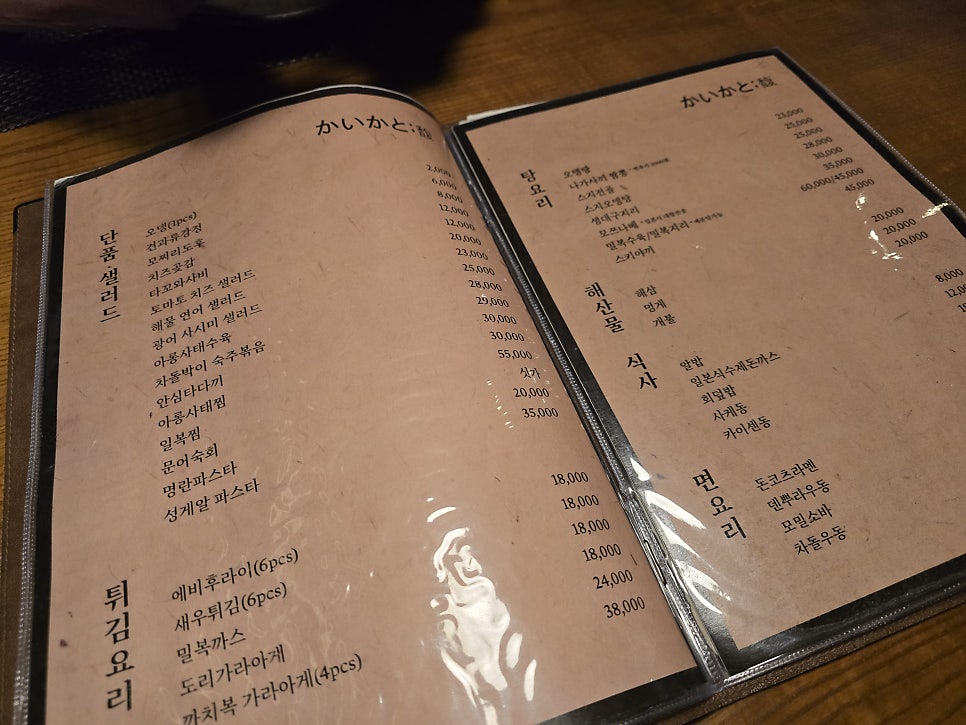 かいかと;
단품·샐러드
오뎅(3pcs) 2,000
견과류강정 6,000
8,000
치즈곶감 12,000
타꼬와사비 12,000
토마토 치즈 샐러드 20,000
해물 연어 샐러드 23,000
광어 사시미 샐러드 25,000
아롱사태수육 28,000
차돌박이 숙주볶음 29,000
안심타다끼 30,000
아롱사태찜 30,000
밀복찜 55,000
문어숙회 싯가
명란파스타 20,000
성게알 파스타 35,000
튀김요리
에비후라이(6pcs) 18,000
새우튀김(6pcs) 18,000
밀복까스 18,000
도리가라아게 18,000
까치복 가라아게(4pcs) 24,000
38,000
かいかと;
탕요리
오뎅탕 23,000
나가사끼 짬뽕 25,000
스지전골 25,000
스지오뎅탕 28,000
생대구지리 30,000
모쯔나베 35,000
밀복수육/밀복지리 60,000/45,000
스키야끼 45,000
해산물
해삼 20,000
멍게 20,000
개불 20,000
식사
알밥 8,000
일본식수제돈까스
회덮밥
사케동
카이센동
면요리
돈코츠라멘
덴뿌라우동
모밀소바
차돌우동